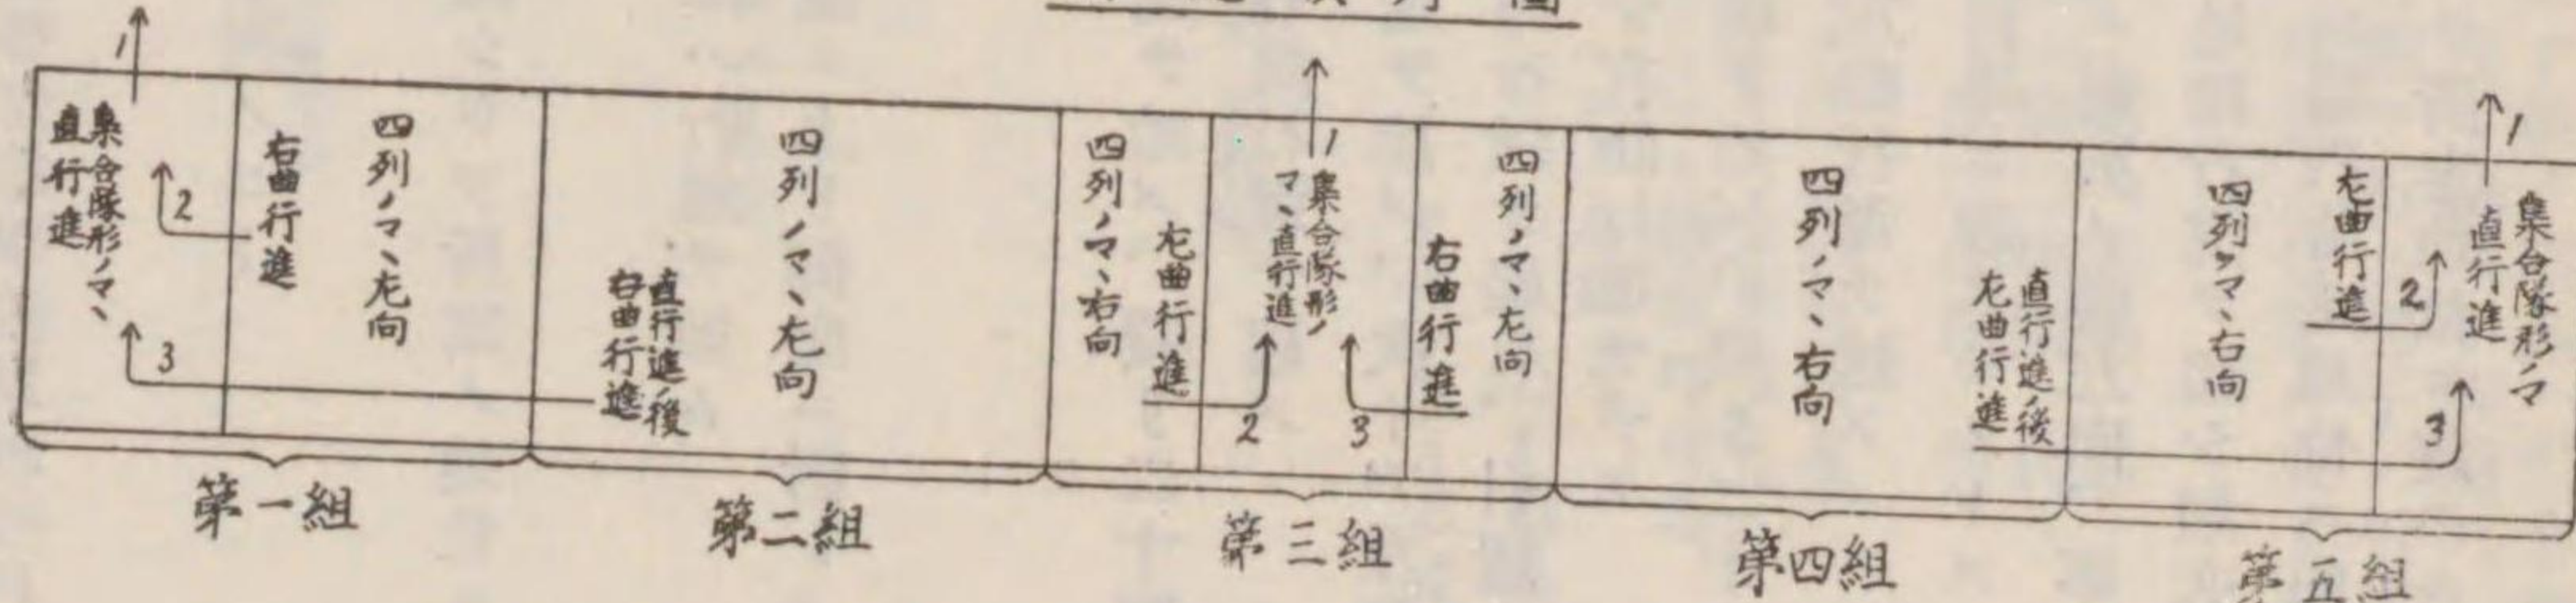 圖
1
集合隊形ノマヽ
直行進
2
3
右曲行進
四列ノマヽ左向
直行進ノ後
右曲行進
四列ノマヽ左向
四列ノマヽ右向
左曲行進
1
集合隊形ノ
マヽ直行進
2
3
右曲行進
四列ノマヽ左向
四列ノマヽ右向
直行進ノ後
左曲行進
四列ノマヽ右向
左曲行進
1
集合隊形ノマ
直行進
2
3
第一組
第二組
第三組
第四組
第五組